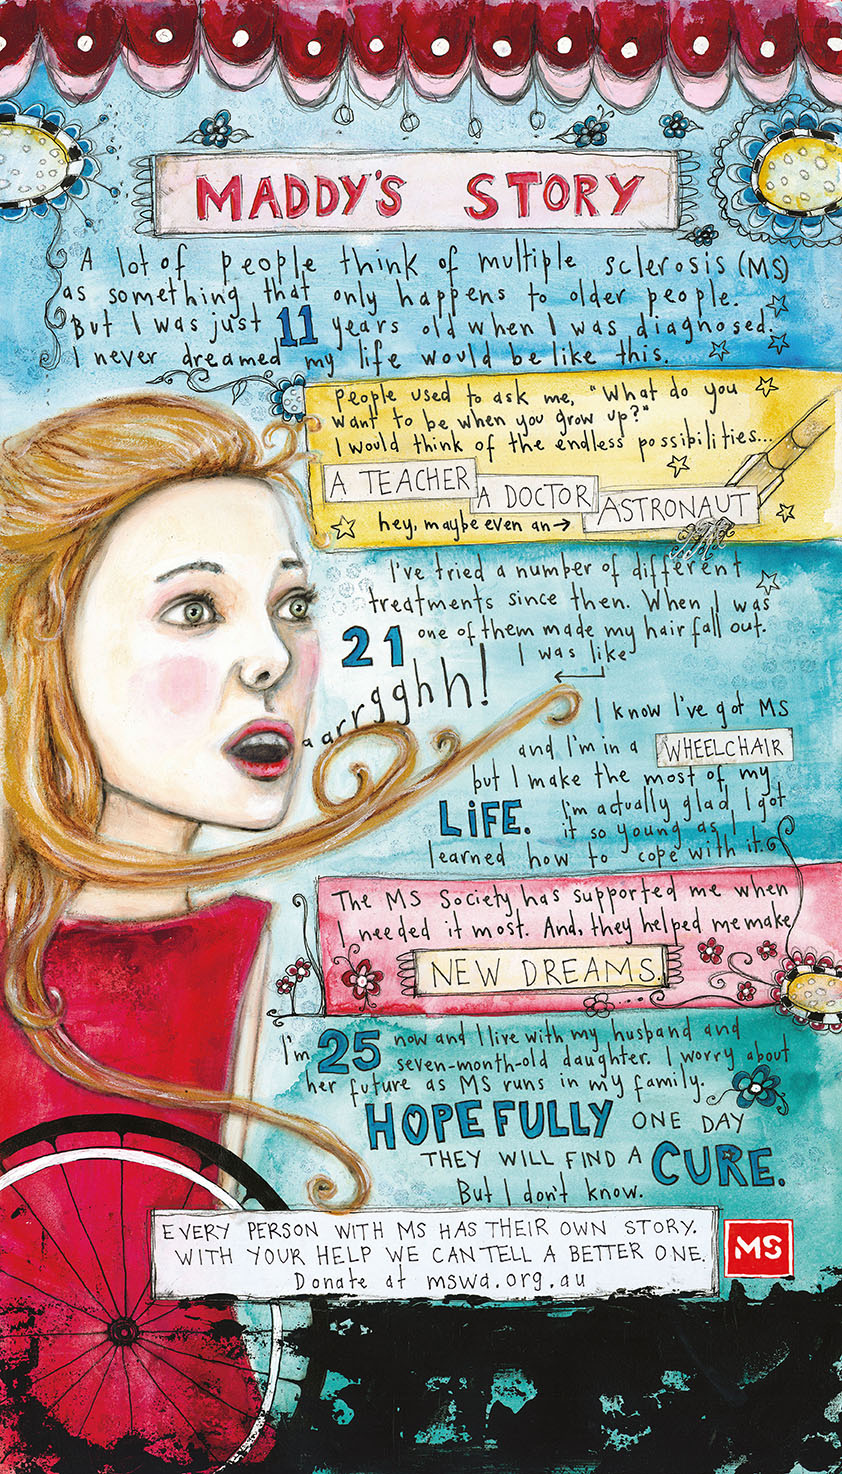 MADDY'S STORY
A lot of people think of multiple sclerosis (MS)
as something that only happens to older people.
But I was just 11 years old when I was diagnosed.
I never dreamed my life would be like this.
People used to ask me, "What do you
want to be when you grow up?"
I would think of the endless possibilities...
A TEACHER
A DOCTOR
hey, maybe even an→ ASTRONAUT
I've tried a number of different
treatments since then. When I was
21 one of them made my hair fall out.
I was like
aarrgghh!
I know I've got MS
and I'm in a WHEELCHAIR
but I make the most of my
LIFE. I'm actually glad I got
it so young as I
learned how to cope with it.
The MS Society has supported me when
I needed it most. And, they helped me make
NEW DREAMS.
I'm 25 now and I live with my husband and
seven-month-old daughter. I worry about
her future as MS runs in my family.
HOPEFULLY ONE DAY
THEY WILL FIND A CURE.
But I don't know.
EVERY PERSON WITH MS HAS THEIR OWN STORY.
WITH YOUR HELP WE CAN TELL A BETTER ONE.
Donate at mswa.org.au
MS